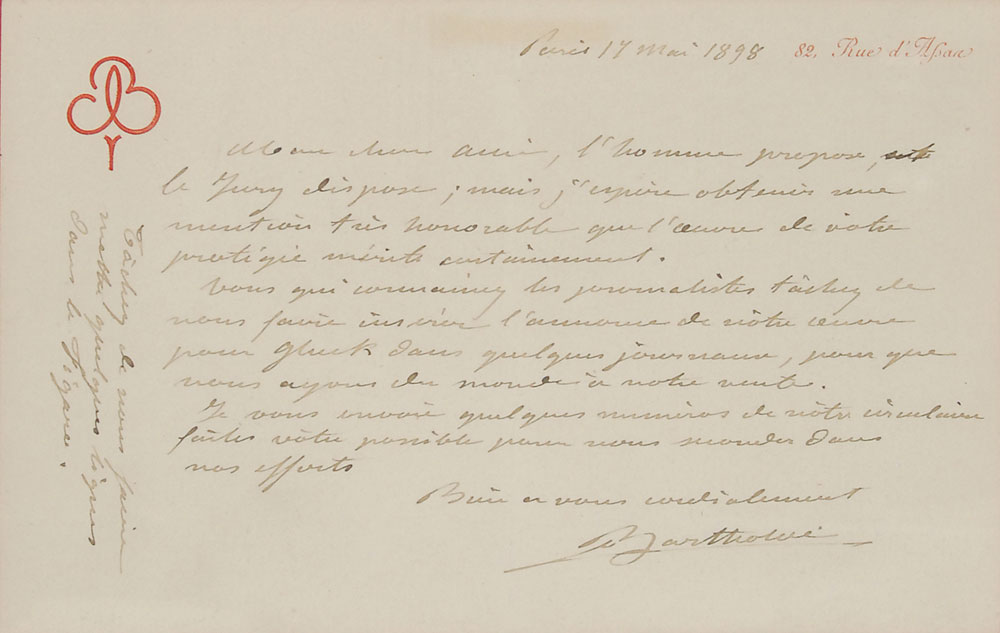 Paris 17 Mai 1898 82, Rue d'Assas
Mon cher ami, l'homme propose, et
le Jury dispose ; mais j'espère obtenir une
mention très honorable que l'œuvre de votre
protégée mérite certainement.
Vous qui connaissez les journalistes tâchez de
nous faire insérer l'annonce de nôtre œuvre
pour Gluck dans quelques journaux, pour que
nous ayons du monde à notre vente.
Je vous envoie quelques numéros de nôtre circulaire
faites vôtre possible pour nous seconder dans
nos efforts
Bien à vous cordialement
Bartholdi
Tâchez de nous faire
mettre quelques lignes
dans le Figaro.